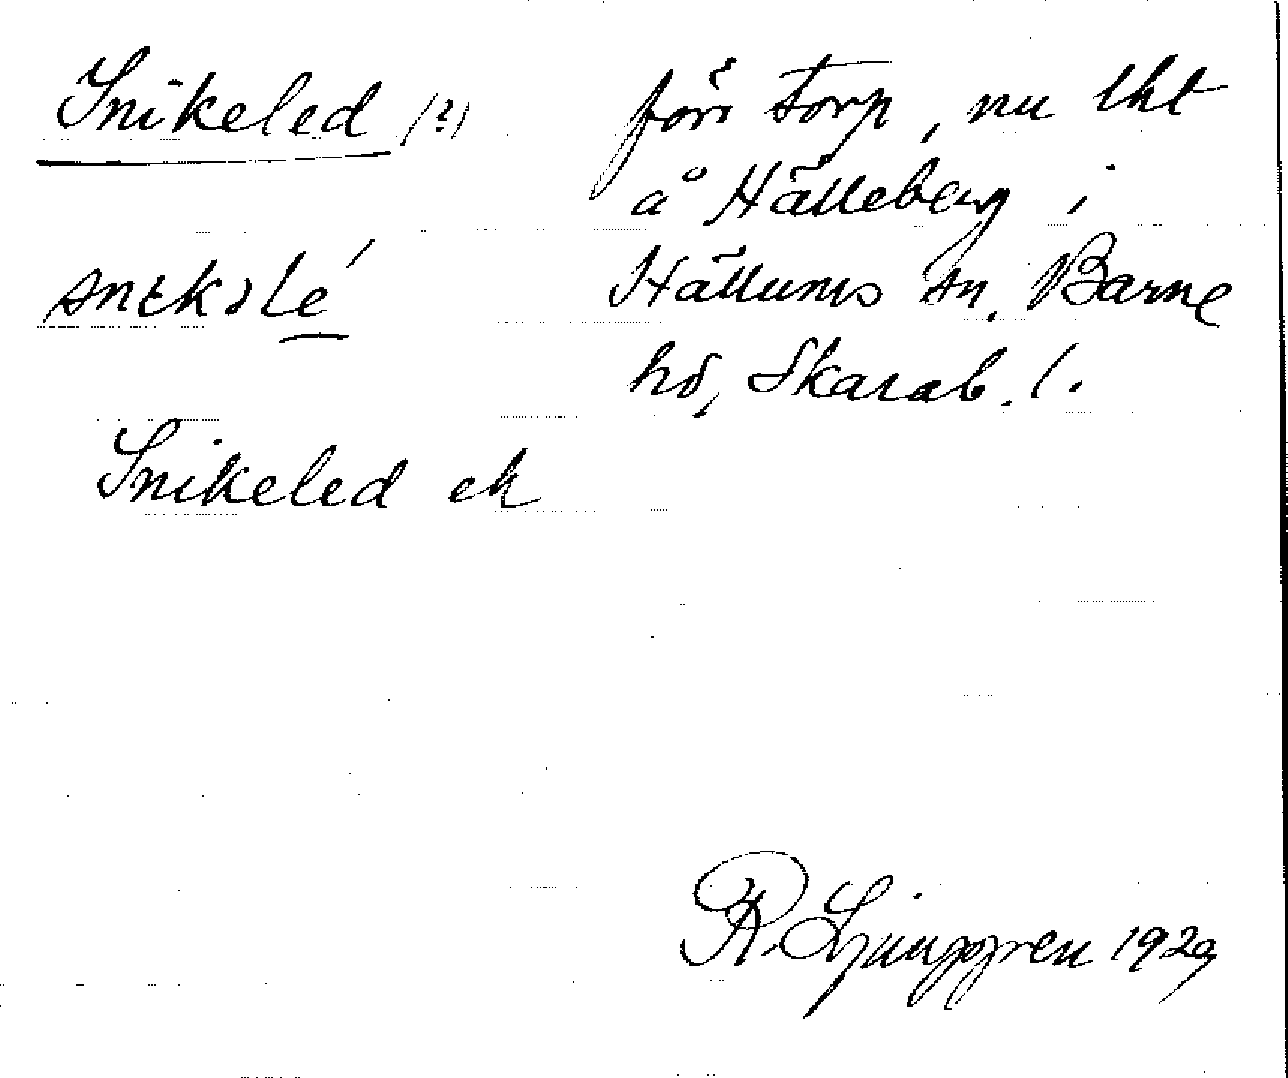 Snikeled (?)
förr torp, nu lht
å Hälleberg i
Hällums sn. Barne
hd, Skarab. l.
snɛkəlé
Snikeled ek
R. Ljunggren 1929